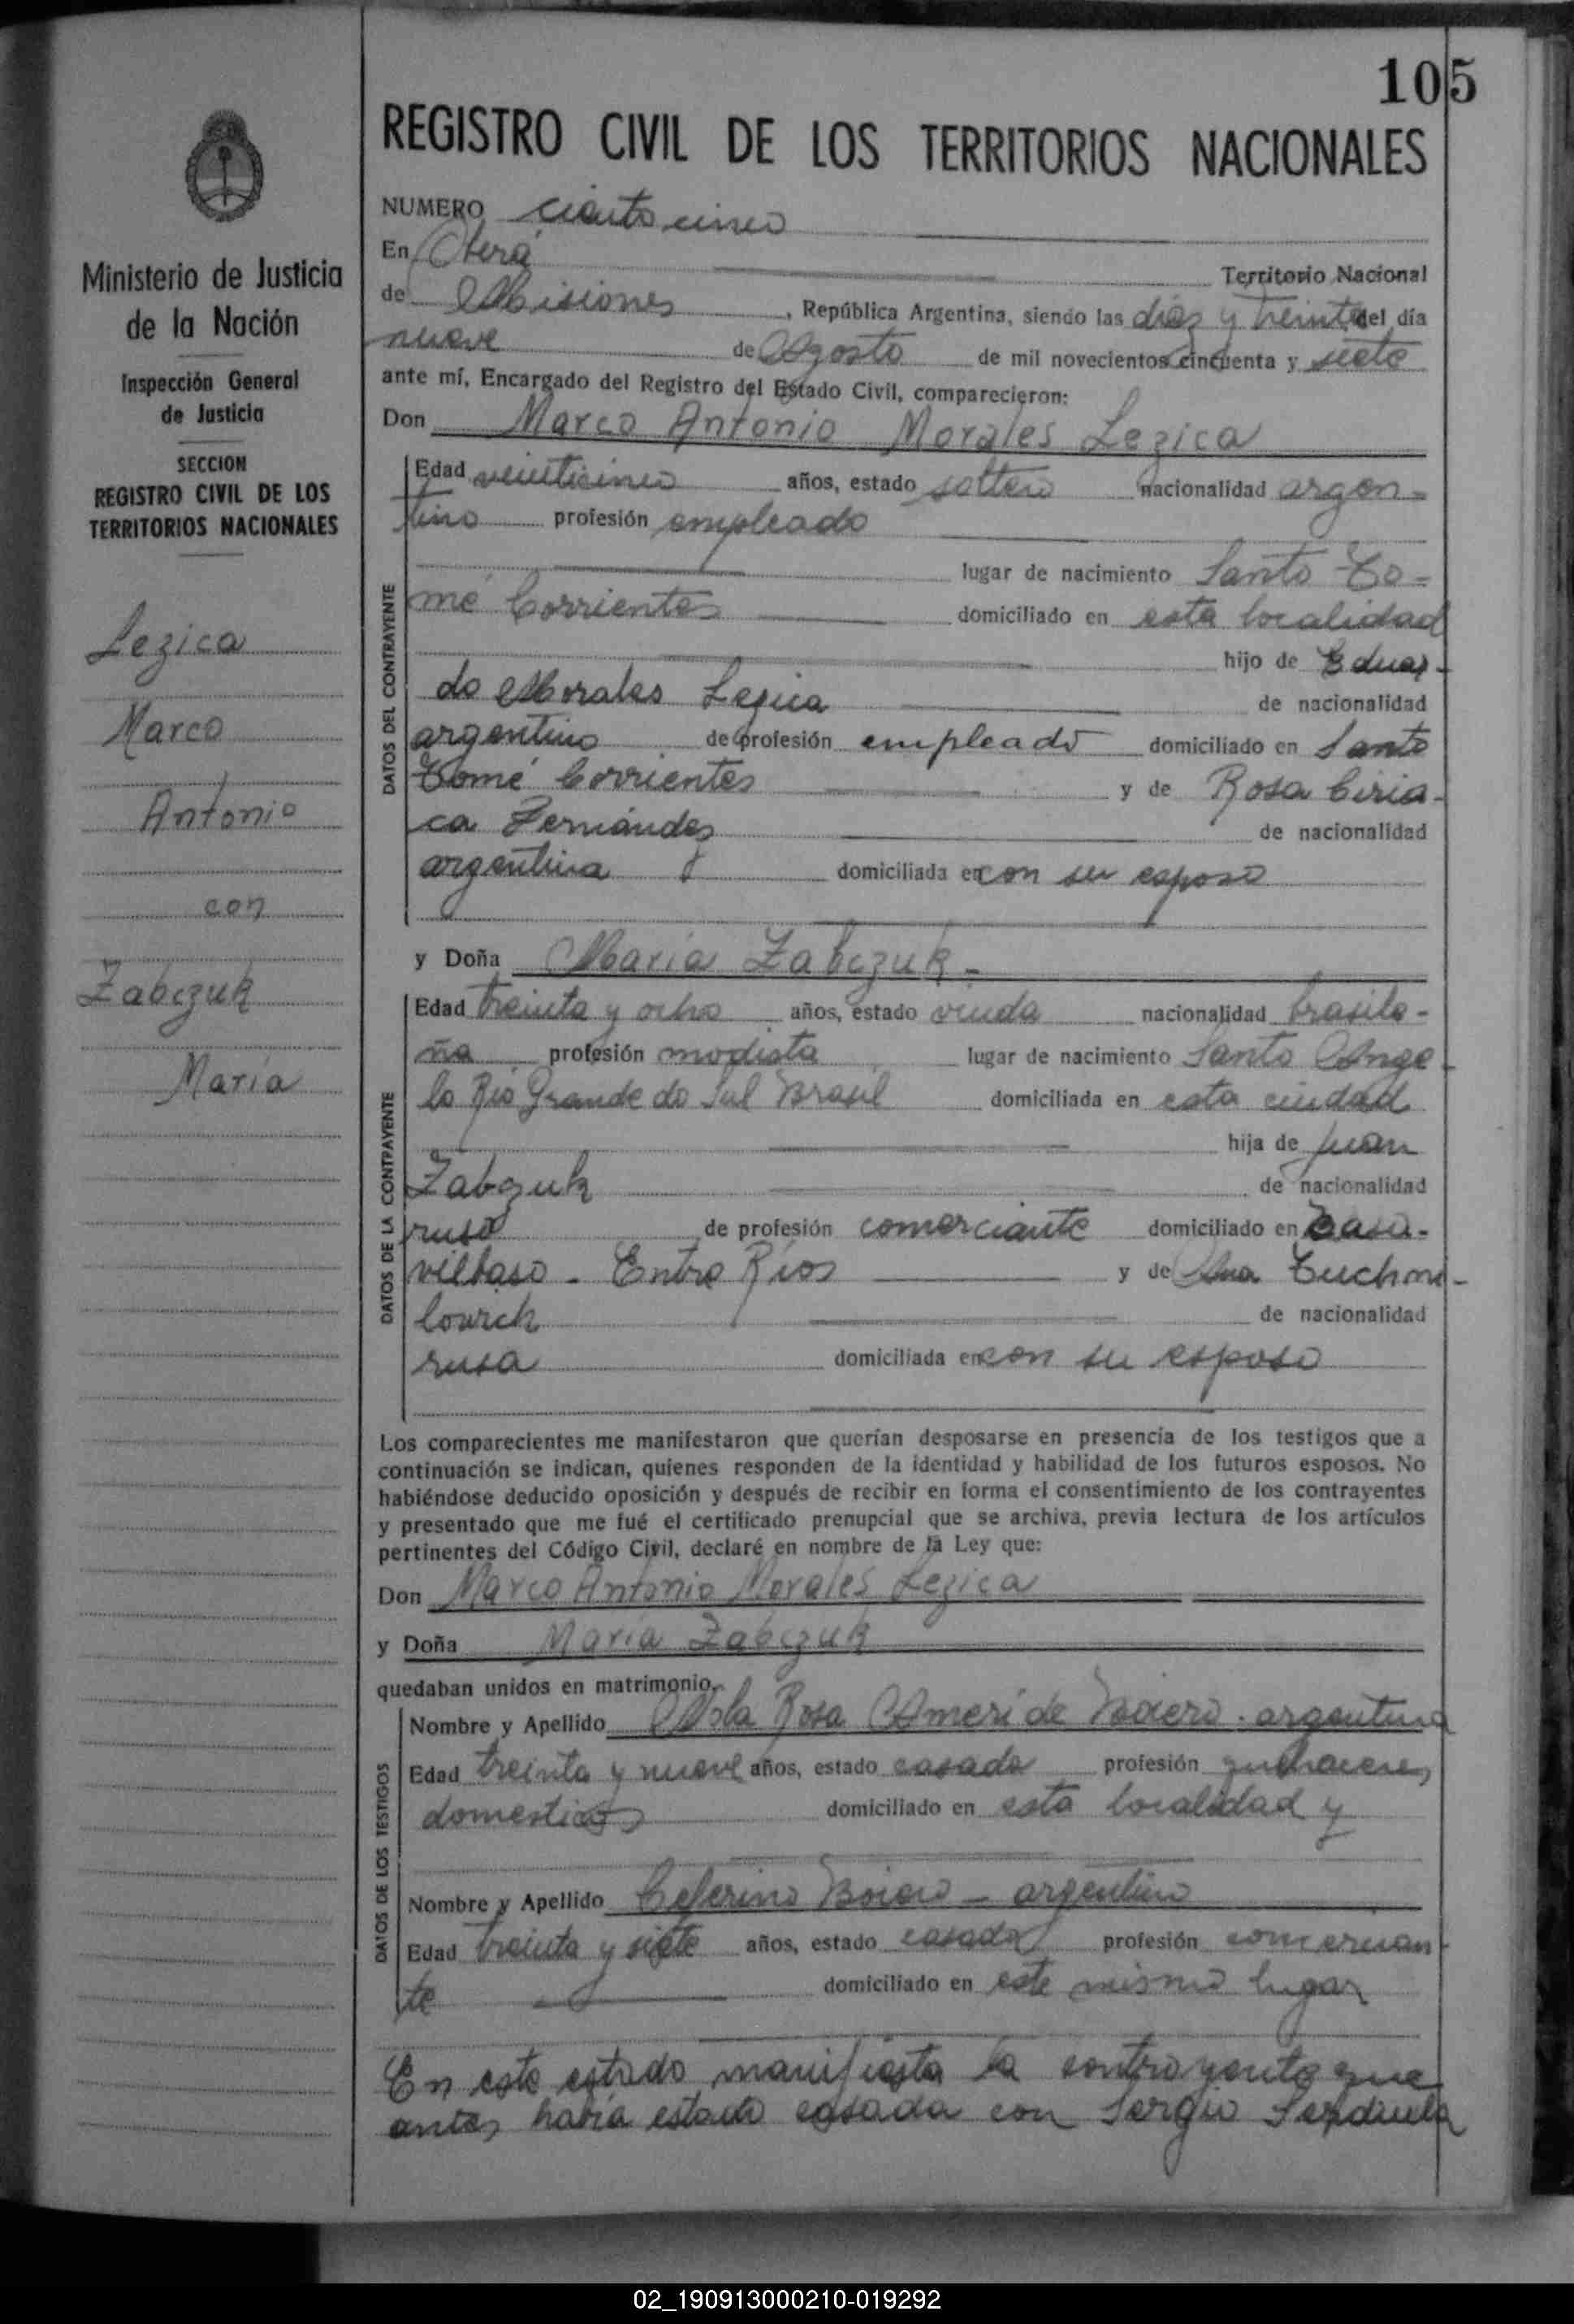 105
REGISTRO CIVIL DE LOS TERRITORIOS NACIONALES
Ministerio de Justicia
de la Nación
Inspección General
de Justicia
SECCION
REGISTRO CIVIL DE LOS
TERRITORIOS NACIONALES
Lezica
Marco
Antonio
con
Zabczuk
María
NUMERO ciento cinco
En Oberá Territorio Nacional
de Misiones, República Argentina, siendo las diez y treinta del día
nueve de Agosto de mil novecientos cincuenta y siete
ante mí, Encargado del Registro del Estado Civil, comparecieron:
Don Marco Antonio Morales Lezica
DATOS DEL CONTRAYENTE
Edad veinticinco años, estado soltero nacionalidad argen-
tino profesión empleado
lugar de nacimiento Santo To-
mé Corrientes domiciliado en esta localidad
hijo de Eduar-
do Morales Lezica de nacionalidad
argentino de profesión empleado domiciliado en Santo
Tomé Corrientes y de Rosa Ciria-
ca Fernández de nacionalidad
argentina domiciliada en con su esposo
y Doña María Zabczuk -
DATOS DE LA CONTRAYENTE
Edad treinta y ocho años, estado viuda nacionalidad brasile-
ña profesión modista lugar de nacimiento Santo Ange-
lo Río Grande do Sul Brasil domiciliada en esta ciudad
hija de Juan
Zabczuk de nacionalidad
ruso de profesión comerciante domiciliado en Basa-
vilbaso - Entre Ríos y de Ana
de nacionalidad
rusa domiciliada en con su esposo
Los comparecientes me manifestaron que querían desposarse en presencia de los testigos que a
continuación se indican, quienes responden de la identidad y habilidad de los futuros esposos. No
habiéndose deducido oposición y después de recibir en forma el consentimiento de los contrayentes
y presentado que me fué el certificado prenupcial que se archiva, previa lectura de los artículos
pertinentes del Código Civil, declaré en nombre de la Ley que:
Don Marco Antonio Morales Lezica
y Doña María Zabczuk
quedaban unidos en matrimonio.
DATOS DE LOS TESTIGOS
Nombre y Apellido Rosa de argentina
Edad treinta y nueve años, estado casada profesión quehaceres
domesticos domiciliado en esta localidad y
Nombre y Apellido Ceferino - argentino
Edad treinta y siete años, estado casado profesión comercian-
te domiciliado en este mismo lugar
En este estado manifiesta la contrayente que
antes había estado casada con Sergio
02_190913000210-019292